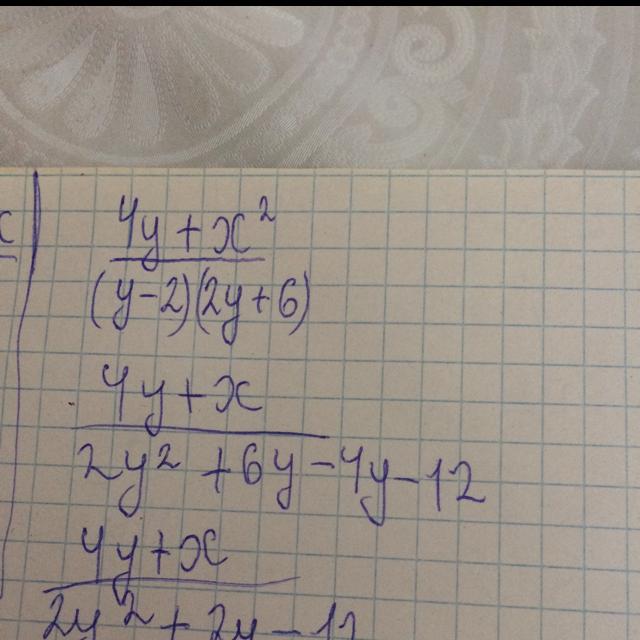 x
4y+x²
(y-2)(2y+6)
4y+x
2y²+6y-4y-12
4y+x
2y²+2y-12